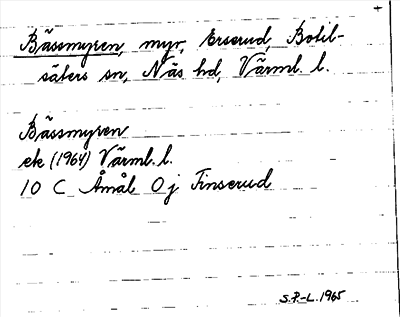 Bässmyren, myr, Erserud, Botil-
säters sn, Näs hd, Värml. l.
Bässmyren
ek (1964) Värml. l.
10 C Åmål 0 j Finserud
S.P.-L. 1965